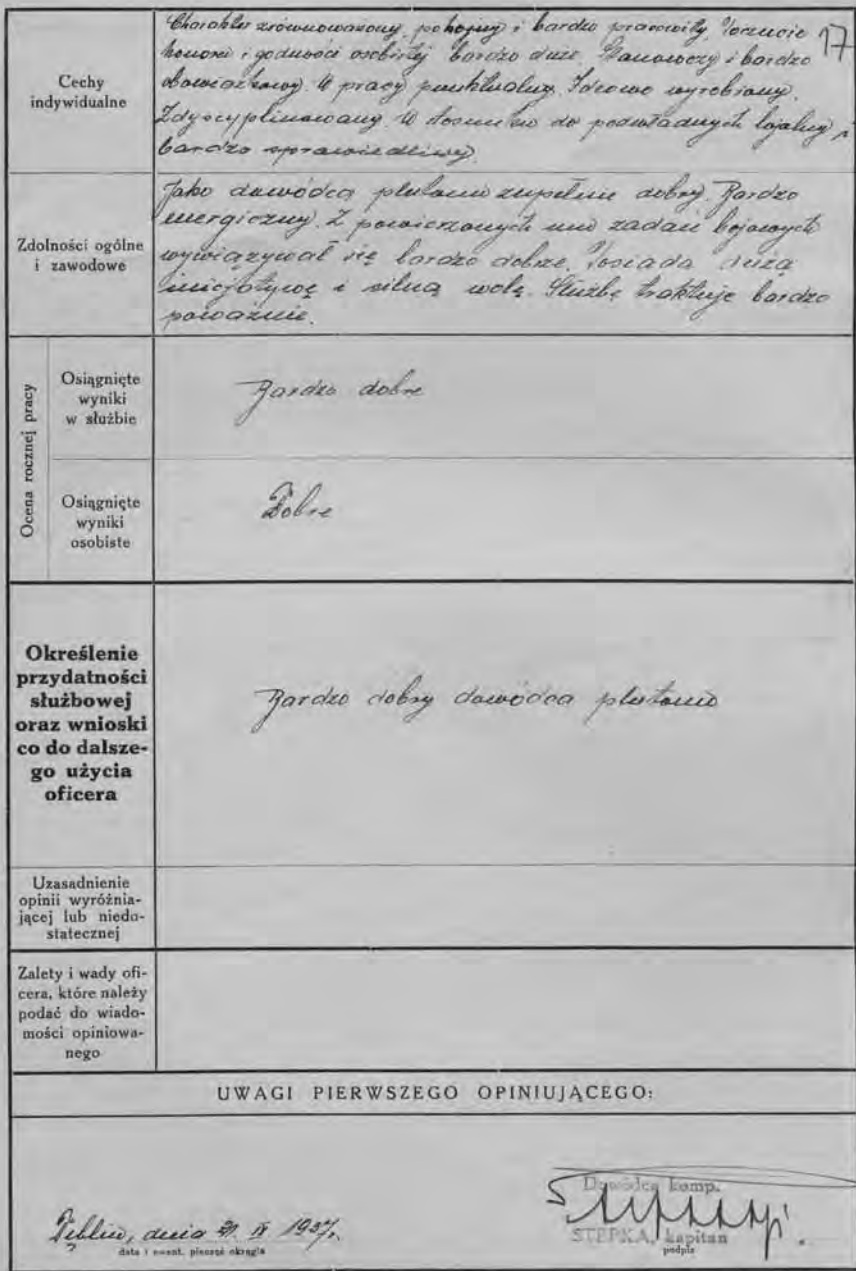 17
Cechy
indywidualne
Charakter zrównoważony, pokojny i bardzo pracowity. Poczucie
honoru i godności osobistej bardzo duże. Stanowczy i bardzo
obowiązkowy. W pracy punktualny. Ideowo wyrobiony.
Zdyscyplinowany. W stosunku do podwładnych lojalny i
bardzo sprawiedliwy.
Zdolności ogólne
i zawodowe
Jako dowódca plutonu zupełnie dobry. Bardzo
energiczny. Z powierzonych mu zadań bojowych
wywiązywał się bardzo dobrze. Posiada dużą
inicjatywę i silną wolę. Służbę traktuje bardzo
poważnie.
Ocena rocznej pracy
Osiągnięte
wyniki
w służbie
Bardzo dobre
Osiągnięte
wyniki
osobiste
Dobre
Określenie
przydatności
służbowej
oraz wnioski
co do dalsze-
go użycia
oficera
Bardzo dobry dowódca plutonu
Uzasadnienie
opinii wyróżnia-
jącej lub niedo-
statecznej
Zalety i wady ofi-
cera, które należy
podać do wiado-
mości opiniowa-
nego
UWAGI PIERWSZEGO OPINIUJĄCEGO:
Dowódca komp.
STEPKA, kapitan
podpis
Dęblin, dnia IX 1937.
data i ewent. pieczęć okrągła